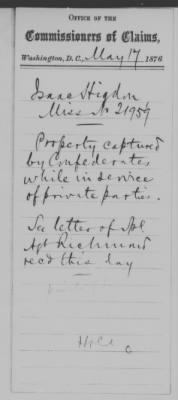 OFFICE OF THE
Commissioners of Claims,
Washington, D.C., May 17, 1876
Isaac Higdon
Miss No 21959
Property captured
by Confederates
while in service
of private parties.
See letter of Spl
Agt Richmond
recd this day